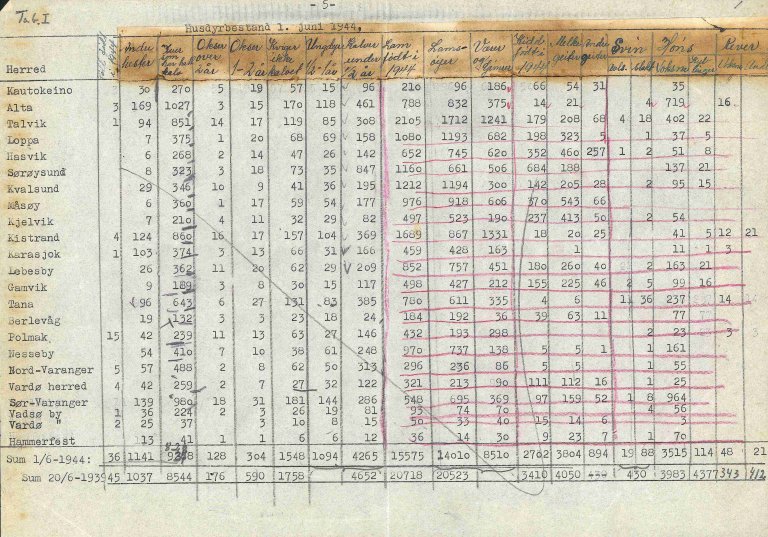 Tab. I
- 5 -
Husdyrbestand 1. juni 1944.
Herred Andre hester Kuer som har hatt kalv Okser over 2 år Okser 1-2 år Kviger ikke kalvet Ungdyr ½-1 år Kalver under ½ år Lam født i 1944 Lams-øyer Værer og Gimrer Kid født i 1944 Melke geiter Andre geiter Svin Høns Voksne Kyllinger Rever Voksne
Kautokeino 30 270 5 19 57 15 96 210 96 186 66 54 31 35
Alta 3 169 1027 3 15 170 118 461 788 832 375 14 21 4 719 16
Talvik 1 94 851 14 17 119 85 308 2105 1712 1241 179 208 68 4 18 402 22
Loppa 7 375 1 20 68 69 158 1080 1193 682 198 323 5 1 37 5
Hasvik 6 268 2 14 47 26 142 652 745 620 352 460 257 1 2 51 8
Sørøysund 8 323 3 18 73 35 847 1160 661 506 684 188 137 21
Kvalsund 29 346 10 9 41 36 195 1212 1194 300 142 205 28 2 95 15
Måsøy 6 360 1 17 59 54 177 976 918 606 370 543 66
Kjelvik 7 210 4 11 32 29 82 497 523 190 237 413 50 2 54
Kistrand 4 124 860 16 17 157 104 369 1689 867 1331 18 20 25 41 5 12 21
Karasjok 1 103 374 3 13 66 31 166 459 428 163 1 11 1 3
Lebesby 26 362 11 20 62 29 209 852 757 451 180 260 40 2 163 21
Gamvik 9 189 3 8 30 15 117 498 427 212 155 225 46 2 5 99 16
Tana 96 643 6 27 131 83 385 780 611 335 4 6 11 36 237 14
Berlevåg 19 132 3 3 23 18 24 184 192 36 39 63 11 77
Polmak 15 42 239 11 13 63 27 146 432 193 298 2 23 3
Nesseby 54 410 7 10 38 61 248 970 737 138 5 5 1 1 161
Nord-Varanger 5 57 488 2 8 62 50 313 296 236 86 5 5 1 55
Vardø herred 4 42 259 2 7 27 32 122 321 213 90 111 112 16 1 25
Sør-Varanger 139 980 18 31 181 144 286 548 695 369 97 159 52 1 8 964
Vadsø by 1 36 224 2 3 26 19 81 93 74 70 4 56
Vardø " 2 25 37 3 10 8 15 50 33 40 15 14 6 3
Hammerfest 13 41 1 1 6 6 12 36 14 30 9 23 7 1 70
Sum 1/6-1944: 36 1141 128 304 1548 1094 4265 15575 14010 8510 2702 3804 894 19 88 3515 114 48 21
Sum 20/6-1939 45 1037 8544 176 590 1758 4652 20718 20523 3410 4050 430 3983 4377 343 412